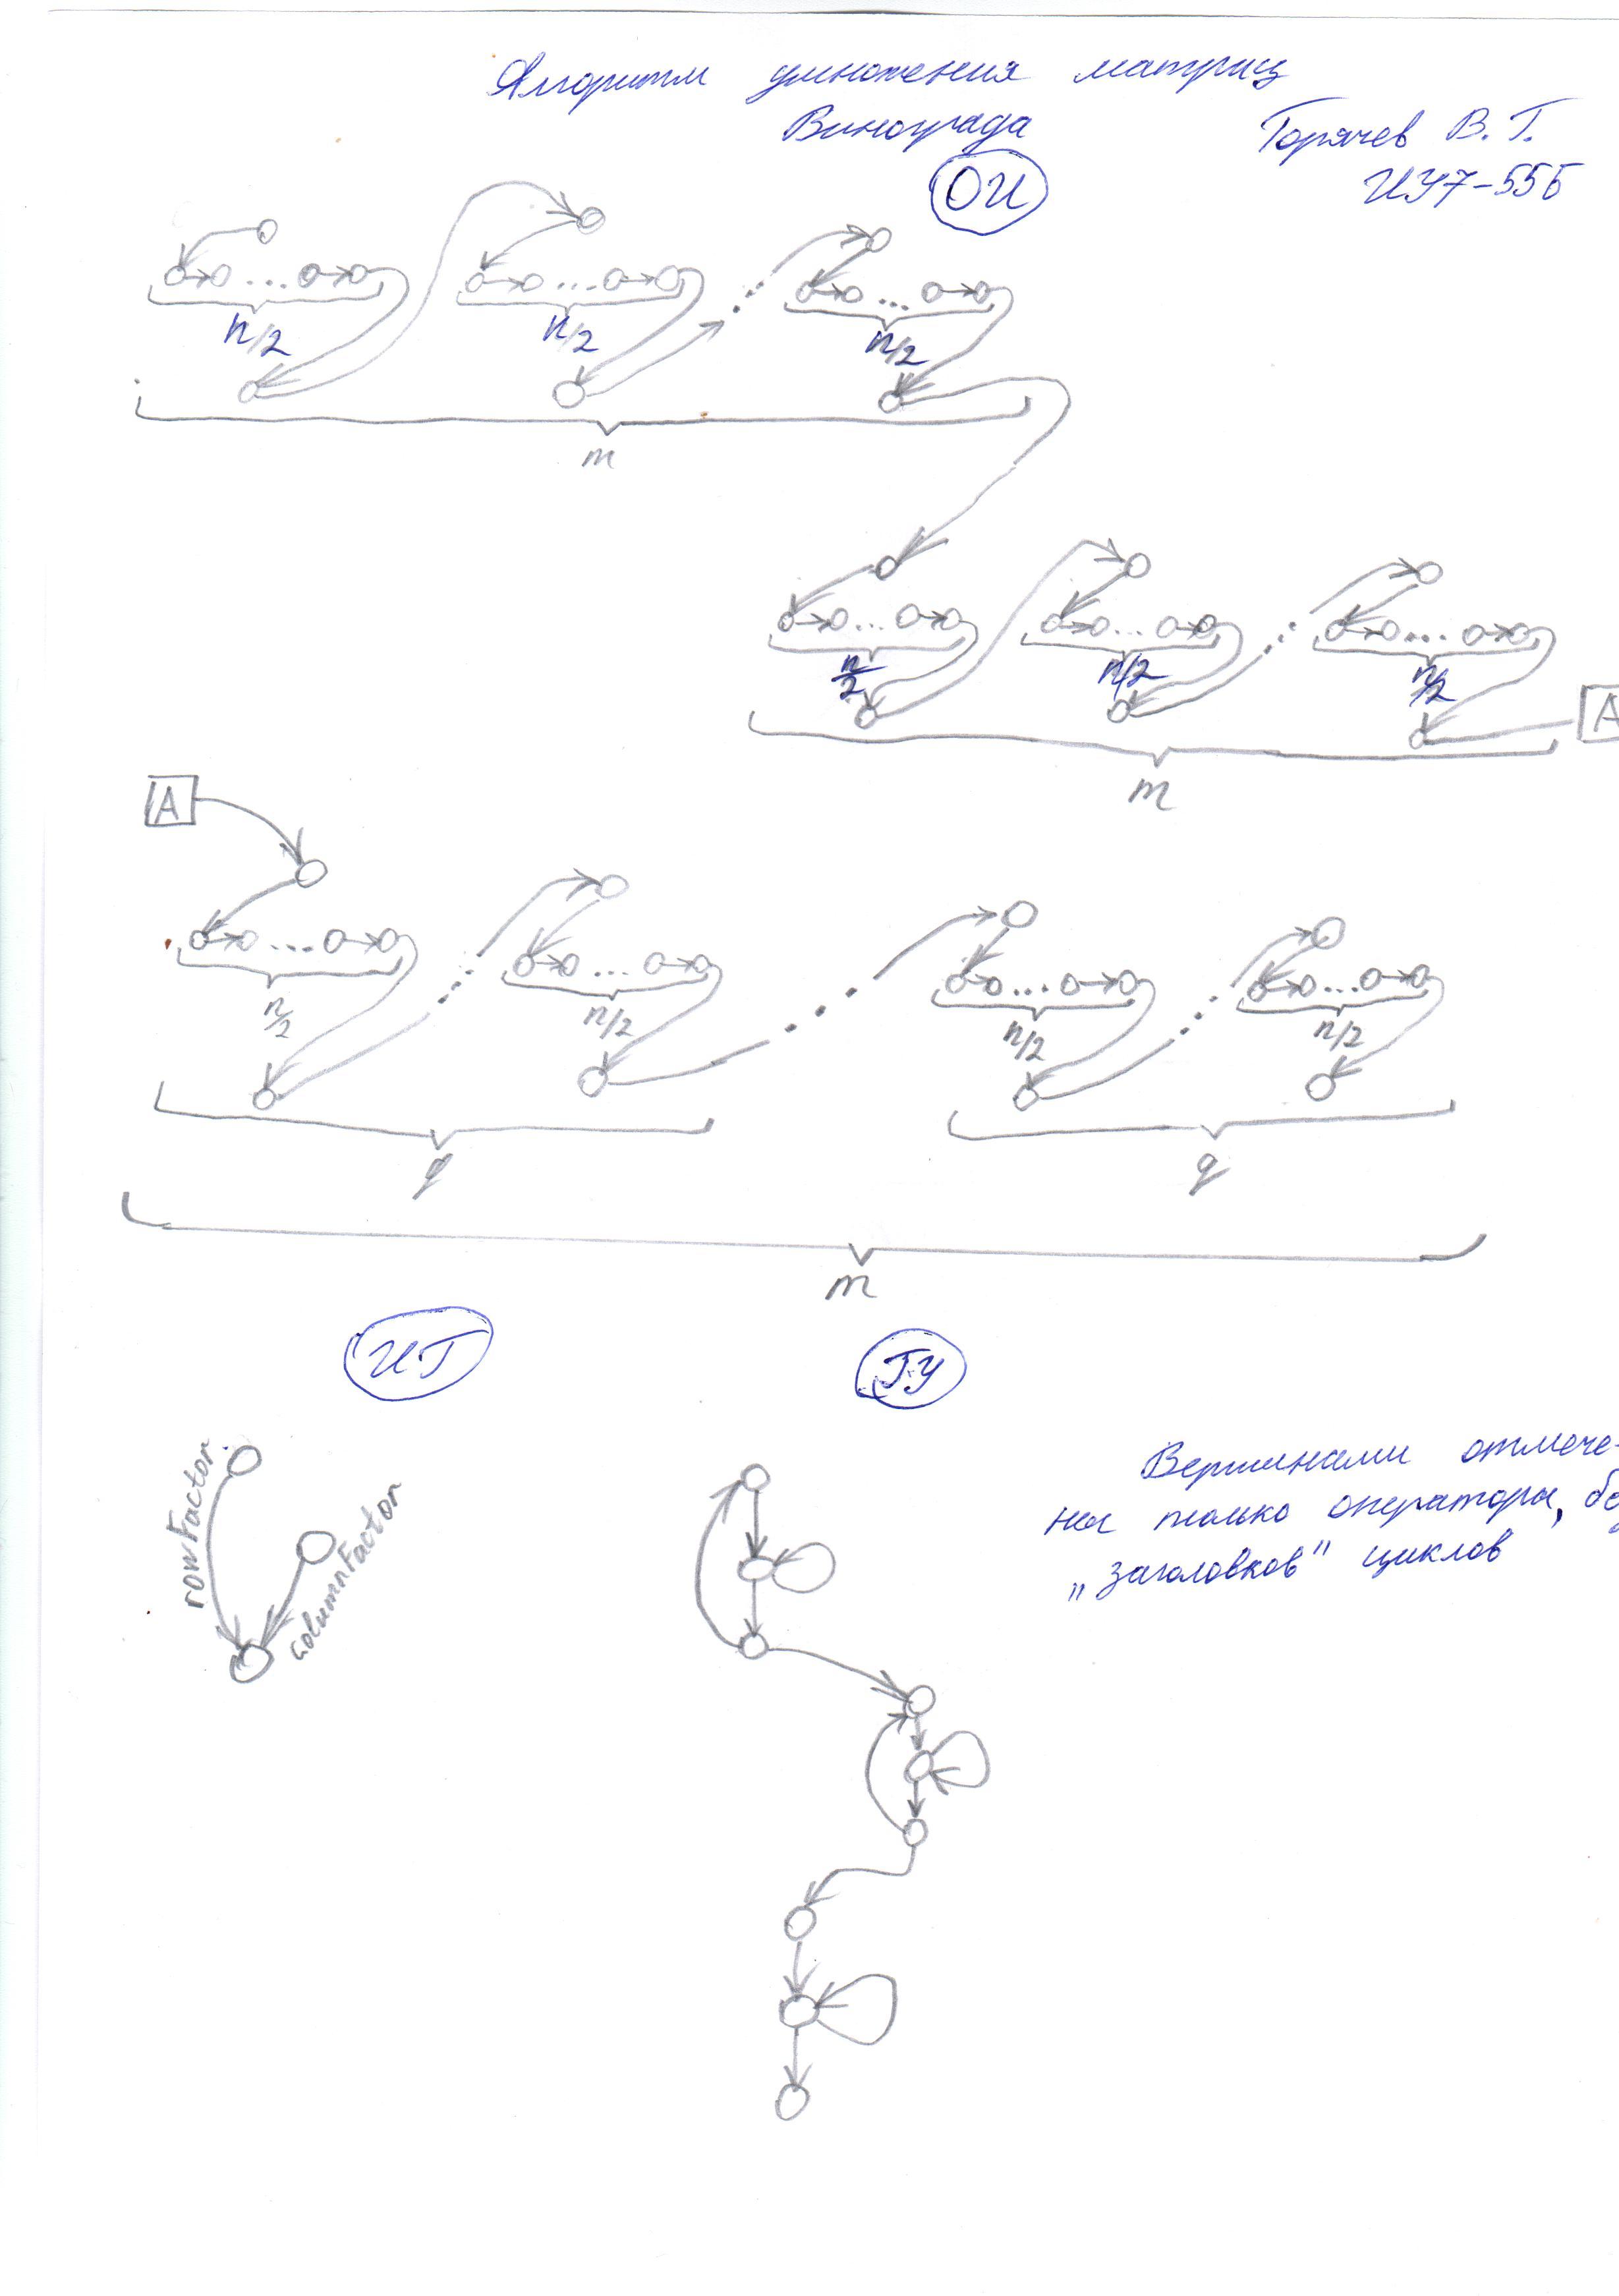 Алгоритм умножения матриц
Винограда
Горячев В. Г.
ИУ7-55Б
ОИ
n/2 n/2 n/2
m
n/2 n/2 n/2
m
A
A
n/2 n/2 n/2 n/2
q q
m
ИГ ГУ
rowFactor
columnFactor
Вершинами отмече-
ны только операторы, бе
„заголовков" циклов